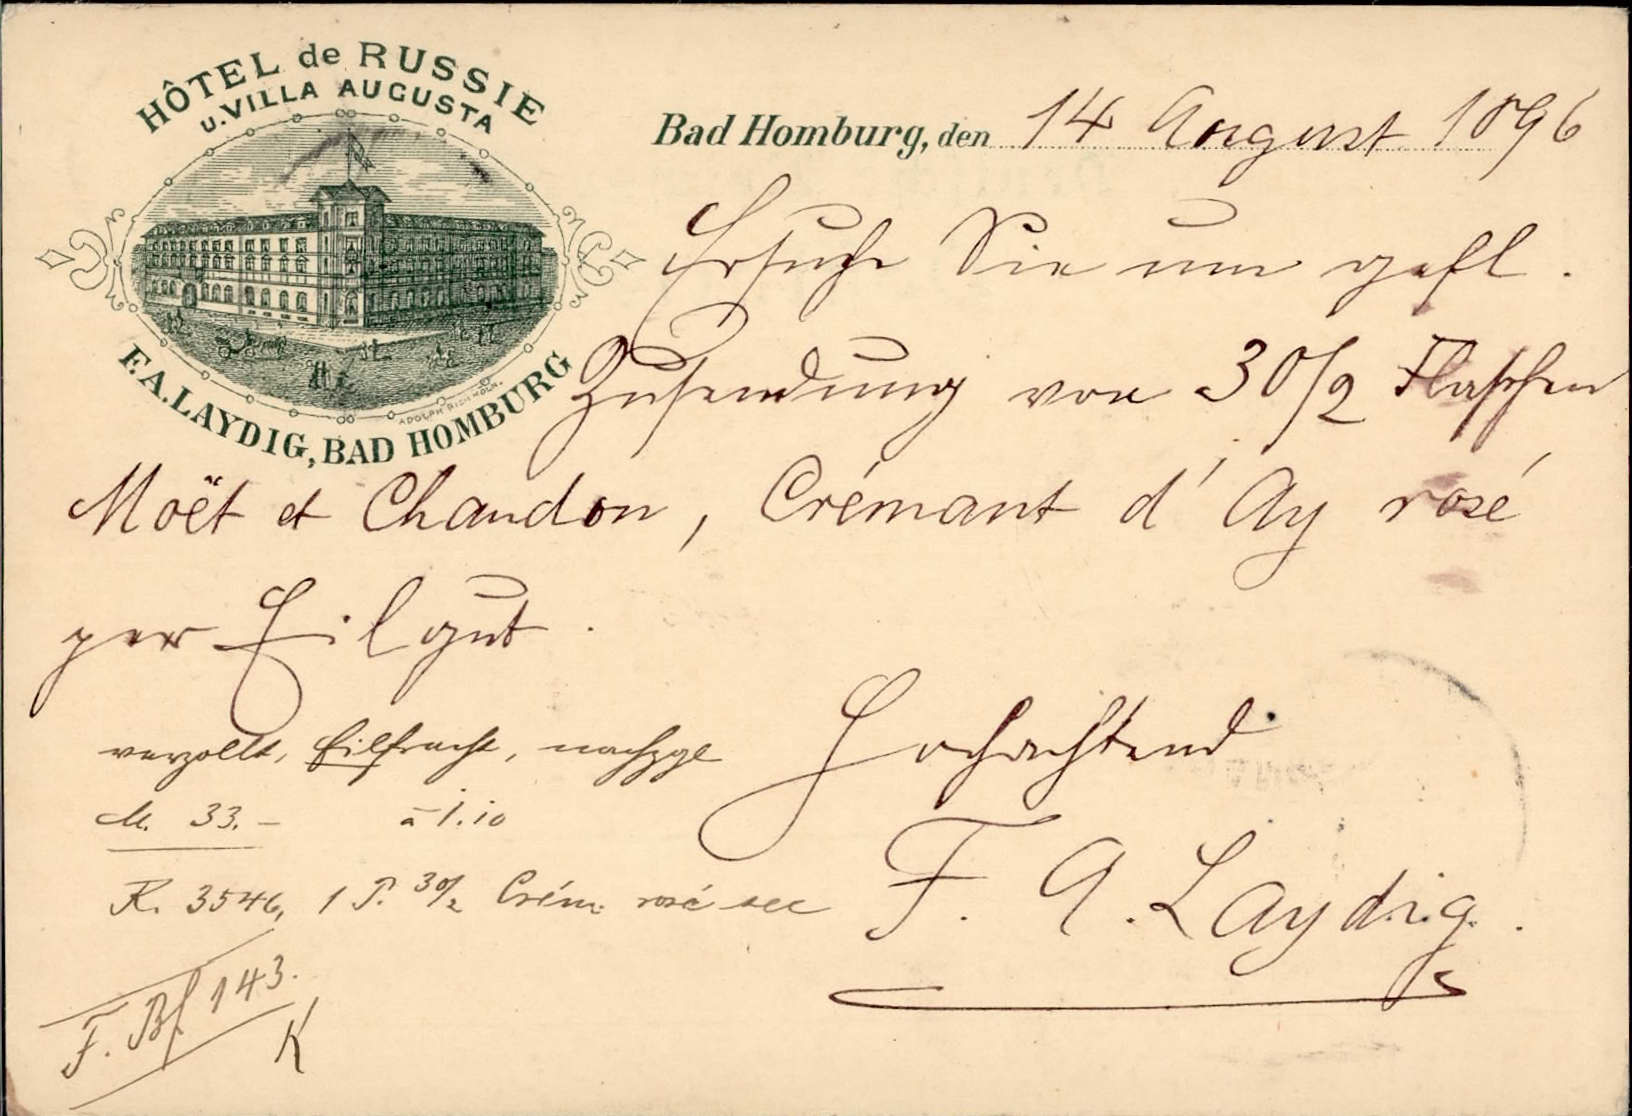 HÔTEL de RUSSIE
u. VILLA AUGUSTA
F. A. LAYDIG, BAD HOMBURG
Bad Homburg, den 14 August 1896
Ersuche Sie um gefl.
Zusendung von 30/2 Flaschen
Moët et Chandon, Crémant d'Ay rosé
per Eilgut.
Hochachtend
F. A. Laydig.
verzollt, Eilfracht,
M. 33.- à 1.10
K. 3546, 1 P. 30/2 Crém. rosé sec
F. Bf 143.
K